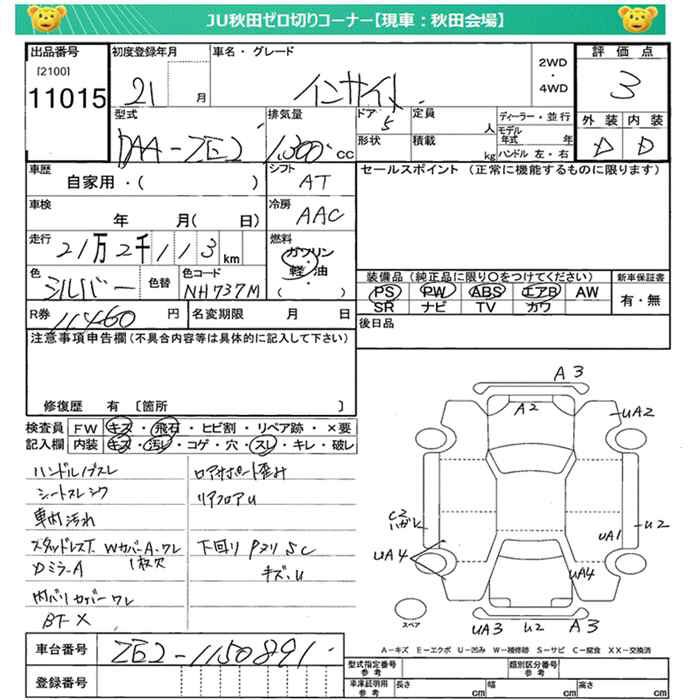 JU秋田ゼロ切りコーナー【現車：秋田会場】
出品番号 [2100] 11015
初度登録年月 21 月
車名・グレード インサイト
2WD ・ 4WD
評価点 3
外装 D 内装 D
型式 DAA-ZE2
排気量 1,300 CC
ドア 5 形状
定員 人 積載 kg
ディーラー・並行
モデル年式 年
ハンドル 左・右
車歴 自家用・( )
シフト AT
セールスポイント (正常に機能するものに限ります)
車検 年 月( 日)
冷房 AAC
走行 21万2千113km
燃料 ガソリン 軽・油 ( ・ )
色 シルバー 色替
色コード NH737M
装備品 (純正品に限り〇をつけてください)
PS PW ABS エアB AW
SR ナビ TV カワ
新車保証書 有・無
R券 11,460 円
名変期限 月 日
後日品
注意事項申告欄 (不具合内容等は具体的に記入して下さい)
修復歴 有 〔箇所 〕
検査員記入欄
FW キズ・飛石・ヒビ割・リペア跡・×要
内装 キズ・汚レ・コゲ・穴・スレ・キレ・破レ
ハンドルノブスレ
シートスレシワ
車内汚れ
スタッドレスT. WカバーA・ワレ
1枚欠
DミラーA
内バリカバーワレ
BT X
ロアサポート歪み
リアフロアU
下回り Pヌリ SC
キズ、U
A3
A2
UA2
C2
ハガレ
UA1
U2
UA4
UA4
UA3 U2 A3
スペア
A－キズ E－エクボ U－凹み W－補修跡 S－サビ C－腐食 XX－交換済
車台番号 ZE2-1150891
登録番号
型式指定番号 参考
類別区分番号 参考
車庫証明用 参考 長さ cm 幅 cm 高さ cm